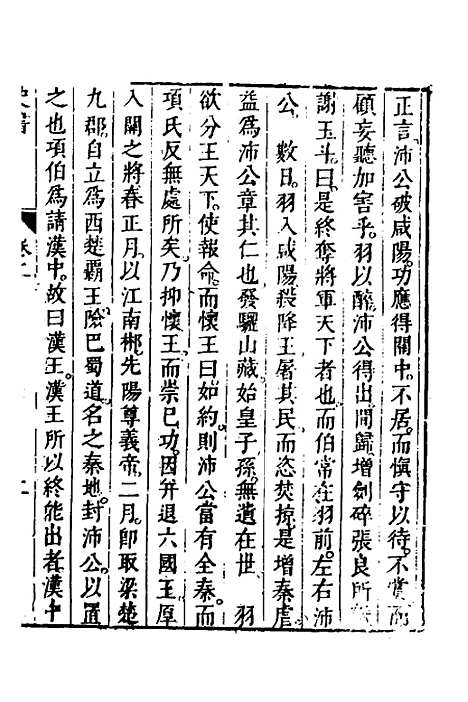 正言沛公破咸陽功應得關中不居而愼守以待不賞而
顧妄聽加害乎羽以醉沛公得出間歸增劍碎張良所
謝玉斗曰是終奪將軍天下者也而伯常在羽前左右沛
公 數日羽入咸陽殺降王屠其民而恣焚掠是增秦虐
益爲沛公章其仁也發驪山藏始皇子孫無遺在世 羽
欲分王天下使報命而懷王曰如約則沛公當有全秦而
項氏反無處所矣乃抑懷王而崇已功因幷退六國王原
入關之將春正月以江南郴先陽尊義帝二月卽取梁楚
九郡自立爲西楚霸王險巴蜀道名之秦地封沛公以置
之也項伯爲請漢中故曰漢王漢王所以終能出者漢中